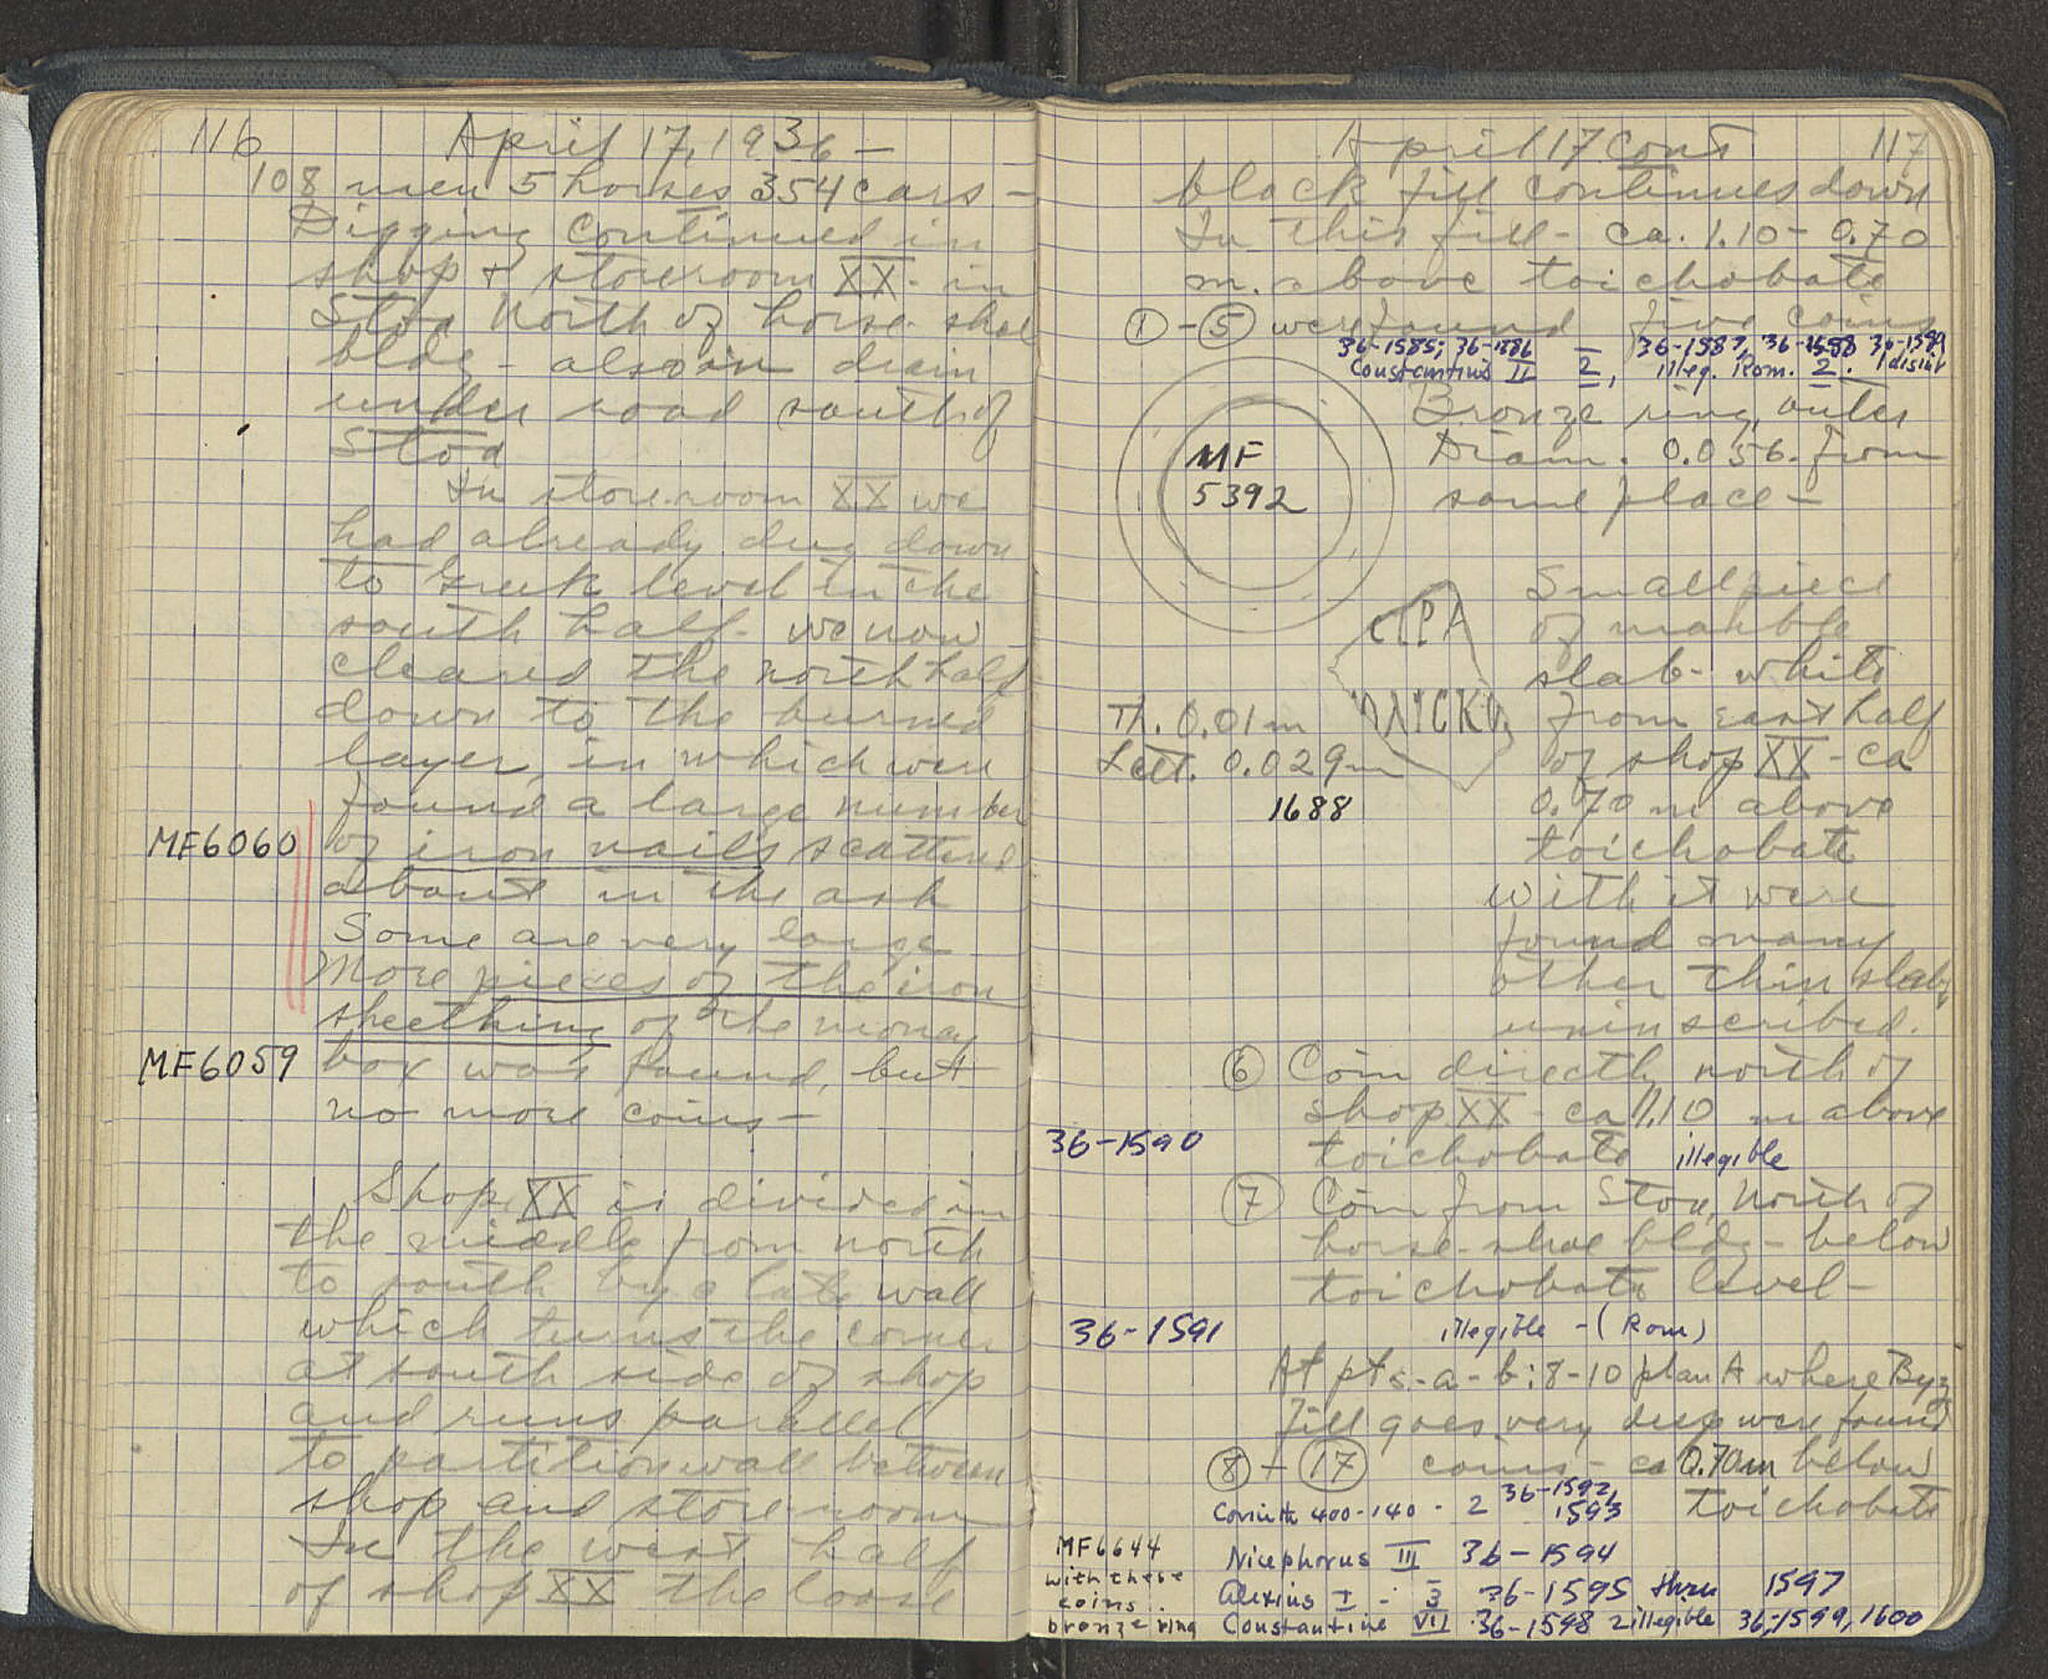 116 April 17, 1936 -
108 men 5 horses 354 cars -
Digging continued in
shop + storeroom XX - in
Stoa North of horse-shoe
bldg - also in drain
under road south of
Stoa
In storeroom XX we
had already dug down
to Greek level in the
south half - we now
cleared the north half
down to the burned
layer, in which were
found a large number
MF6060 of iron nails scattered
about in the ash
Some are very large
More pieces of the iron
sheething of the money
MF6059 box was found, but
no more coins -
Shop XX is divided in
the middle from north
to south by a late wall
which turns the corner
at south side of shop
and runs parallel
to partition wall between
shop and storeroom
In the west half
of shop XX the loose
April 17 Cont 117
black fill continues down
In this fill - ca. 1.10 - 0.70
m. above toichobate
1 - 5 were found five coins
36-1585; 36-1586 - 36-1587, 36-1588 36-1589
Constantius II 2, illeg. Rom. 2.
Bronze ring, outer
Diam. 0.056. from
same place -
MF
5392
Small piece
of marble
slab - white
from east half
of shop XX - ca
0.70 m above
toichobate
with it were
found many
other thin slabs
uninscribed.
ΡΑ
ΙCΚ
Th. 0.01 m
Lett. 0.029 m
1688
6 Coin directly north of
shop XX - ca 1.10 m above
36-1590 toichobate illegible
7 Coin from Stoa, North of
horse-shoe bldg - below
toichobate level -
36-1591 illegible - (Rom)
At pts - a - b : 8-10 plan A where Byz
fill goes very deep were found
8 + 17 coins - ca 0.70 m below
toichobate
Corinth 400-140 - 2 36-1592,
1593
Nicephorus III 36-1594
Alexius I - 3 36-1595 thru 1597
Constantine VII 36-1598 2 illegible 36-1599, 1600
MF6644
with these
coins.
bronze ring